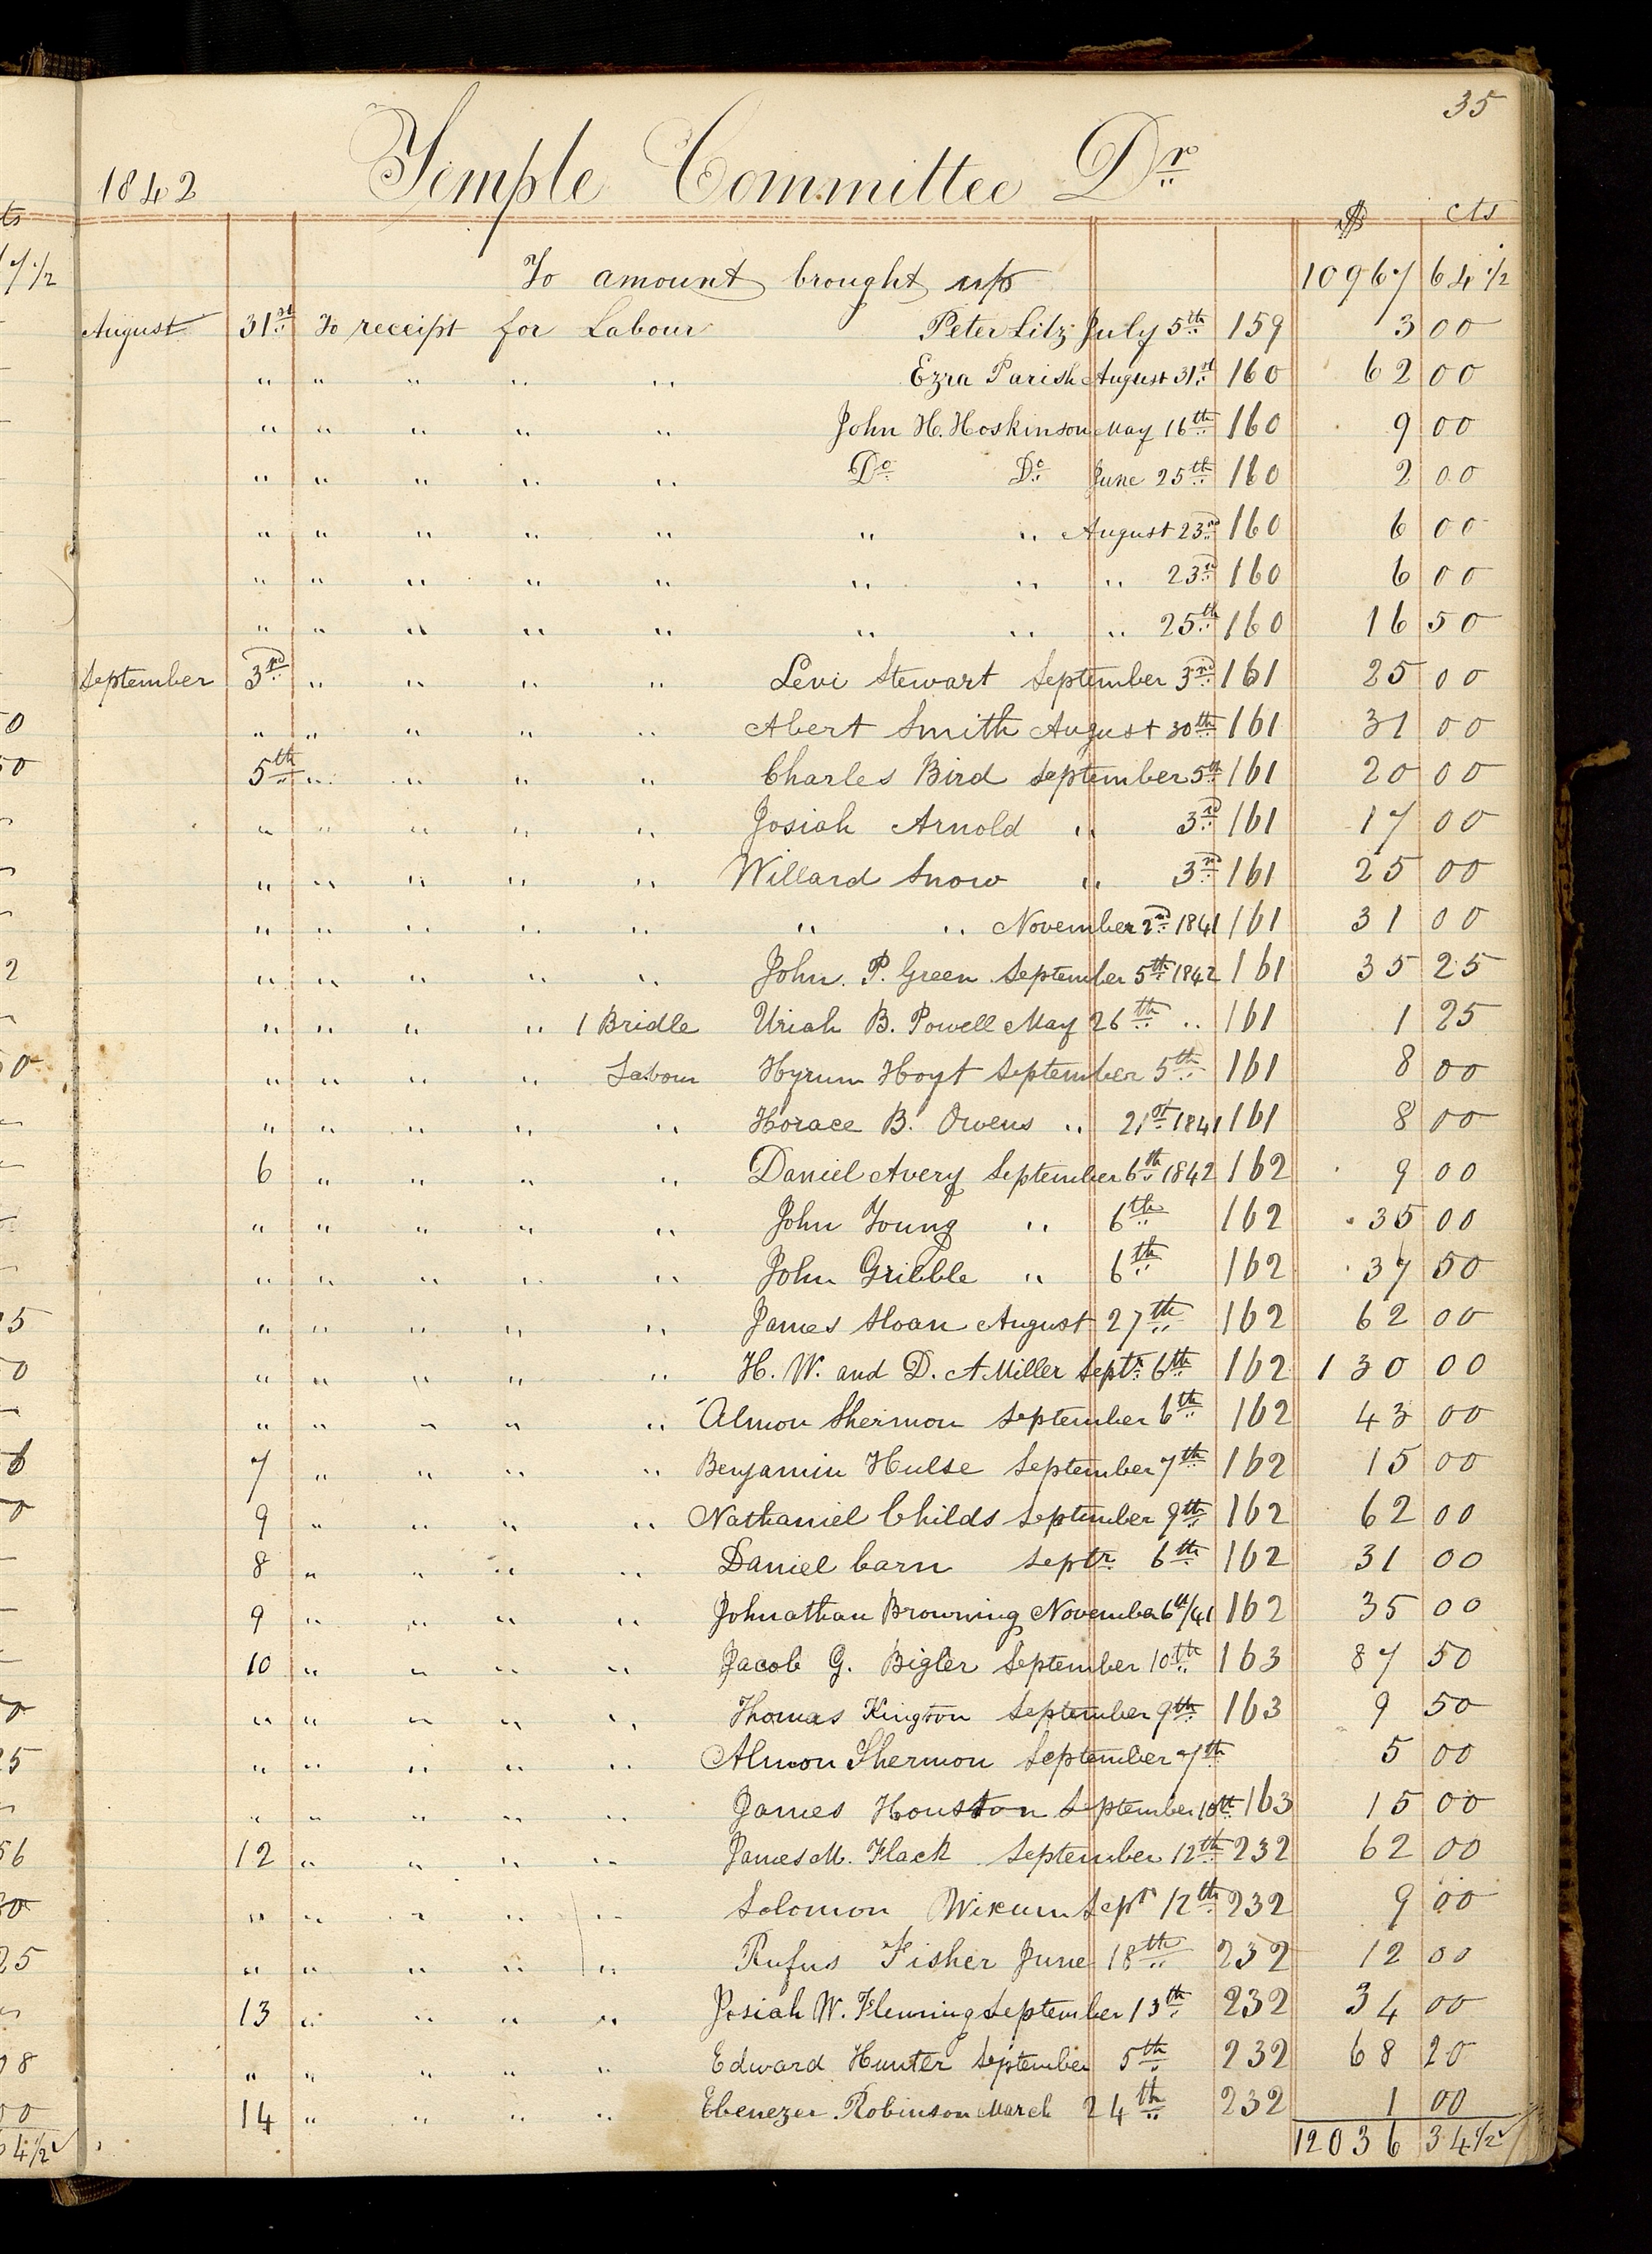 35
1842 Temple Committee Dr
$ cts
To amount brought up 10967 64 1/2
August 31st To receipt for Labour Peter Litz July 5th 159 3 00
" " " " " Ezra Parish August 31st 160 62 00
" " " " " John H. Hoskinson May 16th 160 9 00
" " " " " Do Do June 25th 160 2 00
" " " " " " " August 23rd 160 6 00
" " " " " " " " 23rd 160 6 00
" " " " " " " " 25th 160 16 50
September 3rd " " " " Levi Stewart September 3rd 161 25 00
" " " " " Abert Smith August 30th 161 31 00
5th " " " " Charles Bird September 5th 161 20 00
" " " " " Josiah Arnold " 3rd 161 17 00
" " " " " Willard Snow " 3rd 161 25 00
" " " " " " " November 2nd 1841 161 31 00
" " " " " John. P. Green September 5th 1842 161 35 25
" " " " 1 Bridle Uriah B. Powell May 26th " 161 1 25
" " " " Labour Hyrum Hoyt September 5th 161 8 00
" " " " " Horace B. Owens " 21st 1841 161 8 00
6 " " " " Daniel Avery September 6th 1842 162 9 00
" " " " " John Young " 6th 162 35 00
" " " " " John Gribble " 6th 162 37 50
" " " " " James Sloan August 27th 162 62 00
" " " " " H. W. and D. A Miller Septr 6th 162 130 00
" " " " " Almon Shermon September 6th 162 43 00
7 " " " " Benjamin Hulse September 7th 162 15 00
9 " " " " Nathaniel Childs September 9th 162 62 00
8 " " " " Daniel Carn Septr 6th 162 31 00
9 " " " " Johnathan Browning November 6th/41 162 35 00
10 " " " " Jacob G. Bigler September 10th 163 87 50
" " " " " Thomas Kington September 9th 163 9 50
" " " " " Almon Shermon September 7th 5 00
" " " " " James Houston September 10th 163 15 00
12 " " " " James M. Flack September 12th 232 62 00
" " " " " Solomon Wixum Sepr 12th 232 9 00
" " " " " Rufus Fisher June 18th 232 12 00
13 " " " " Josiah W. Fleming September 13th 232 34 00
" " " " " Edward Hunter September 5th 232 68 20
14 " " " " Ebenezer Robinson March 24th 232 1 00
12036 34 1/2